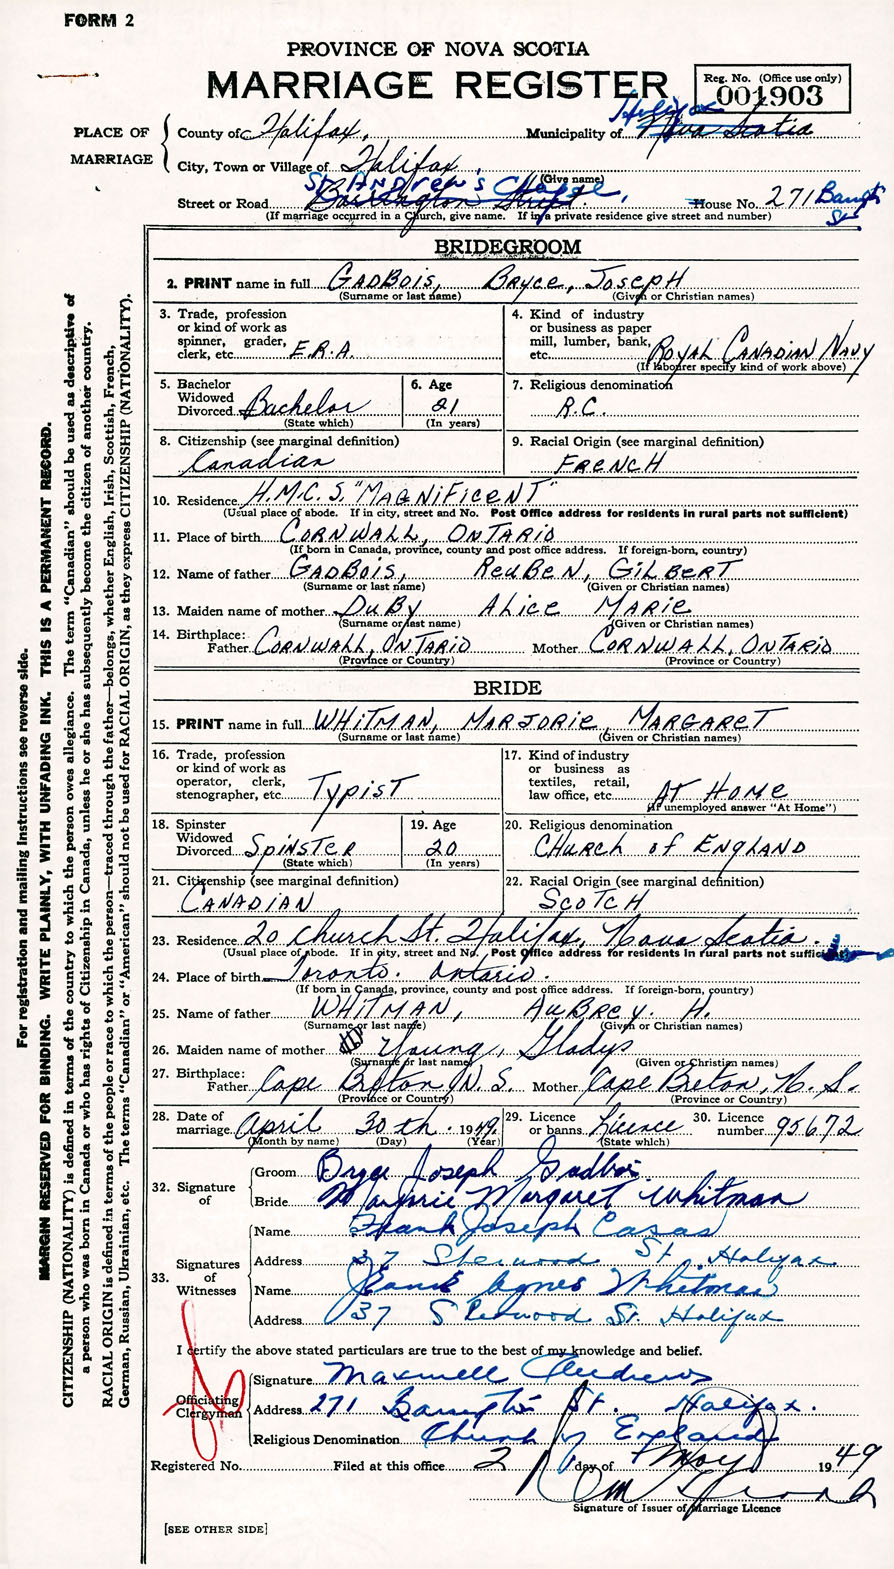 FORM 2
PROVINCE OF NOVA SCOTIA
MARRIAGE REGISTER
Reg. No. (Office use only)
001903
PLACE OF MARRIAGE
County of Halifax, Municipality of Halifax Nova Scotia
City, Town or Village of Halifax,
(Give name)
St. Andrew's Chapel,
Street or Road Barrington Street. House No. 271 Barrngtn St
(If marriage occurred in a Church, give name. If in a private residence give street and number)
BRIDEGROOM
2. PRINT name in full GADBOIS, BRYCE, JOSEPH
(Surname or last name) (Given or Christian names)
3. Trade, profession or kind of work as spinner, grader, clerk, etc. E.R.A.
4. Kind of industry or business as paper mill, lumber, bank, etc. ROYAL CANADIAN NAVY
(If labourer specify kind of work above)
5. Bachelor Widowed Divorced Bachelor
(State which)
6. Age 21
(In years)
7. Religious denomination R.C.
8. Citizenship (see marginal definition) Canadian
9. Racial Origin (see marginal definition) FRENCH
10. Residence H.M.C.S. "MAGNIFICENT"
(Usual place of abode. If in city, street and No. Post Office address for residents in rural parts not sufficient)
11. Place of birth CORNWALL, ONTARIO
(If born in Canada, province, county and post office address. If foreign-born, country)
12. Name of father GADBOIS, REUBEN, GILBERT
(Surname or last name) (Given or Christian names)
13. Maiden name of mother DUBY ALICE MARIE
(Surname or last name) (Given or Christian names)
14. Birthplace: Father CORNWALL, ONTARIO Mother CORNWALL, ONTARIO
(Province or Country) (Province or Country)
BRIDE
15. PRINT name in full WHITMAN, MARJORIE, MARGARET
(Surname or last name) (Given or Christian names)
16. Trade, profession or kind of work as operator, clerk, stenographer, etc. TYPIST
17. Kind of industry or business as textiles, retail, law office, etc. AT HOME
(If unemployed answer "At Home")
18. Spinster Widowed Divorced SPINSTER
(State which)
19. Age 20
(In years)
20. Religious denomination CHURCH of ENGLAND
21. Citizenship (see marginal definition) CANADIAN
22. Racial Origin (see marginal definition) SCOTCH
23. Residence 20 Church St. Halifax, Nova Scotia.
(Usual place of abode. If in city, street and No. Post Office address for residents in rural parts not sufficient)
24. Place of birth Toronto. Ontario.
(If born in Canada, province, county and post office address. If foreign-born, country)
25. Name of father WHITMAN, AUBREY. H.
(Surname or last name) (Given or Christian names)
26. Maiden name of mother Young, Gladys
(Surname or last name) (Given or Christian names)
27. Birthplace: Father Cape Breton N.S. Mother Cape Breton, N.S.
(Province or Country) (Province or Country)
28. Date of marriage April 30th. 1949.
(Month by name) (Day) (Year)
29. Licence or banns Licence
(State which)
30. Licence number 95672
32. Signature of
Groom Bryce Joseph Gadbois
Bride Marjorie Margaret Whitman
33. Signatures of Witnesses
Name Frank Joseph Casas
Address 37 Sherwood St. Halifax
Name Agnes Whitman
Address 37 Sherwood St. Halifax
I certify the above stated particulars are true to the best of my knowledge and belief.
Officiating Clergyman
Signature Maxwell Andrews
Address 271 Barrngtn St. Halifax.
Religious Denomination Church of England
Registered No. Filed at this office 2 day of May 1949
Signature of Issuer of Marriage Licence
[SEE OTHER SIDE]
For registration and mailing instructions see reverse side.
MARGIN RESERVED FOR BINDING. WRITE PLAINLY, WITH UNFADING INK. THIS IS A PERMANENT RECORD.
CITIZENSHIP (NATIONALITY) is defined in terms of the country to which the person owes allegiance. The term "Canadian" should be used as descriptive of
a person who was born in Canada or who has rights of Citizenship in Canada, unless he or she has subsequently become the citizen of another country.
RACIAL ORIGIN is defined in terms of the people or race to which the person—traced through the father—belongs, whether English, Irish, Scottish, French,
German, Russian, Ukrainian, etc. The terms "Canadian" or "American" should not be used for RACIAL ORIGIN, as they express CITIZENSHIP (NATIONALITY).